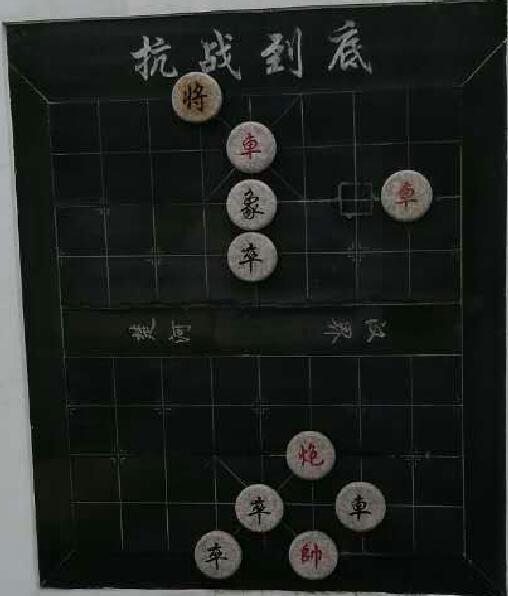 抗战到底
将
車
象 車
卒
楚河 汉界
炮
卒 車
卒 帥